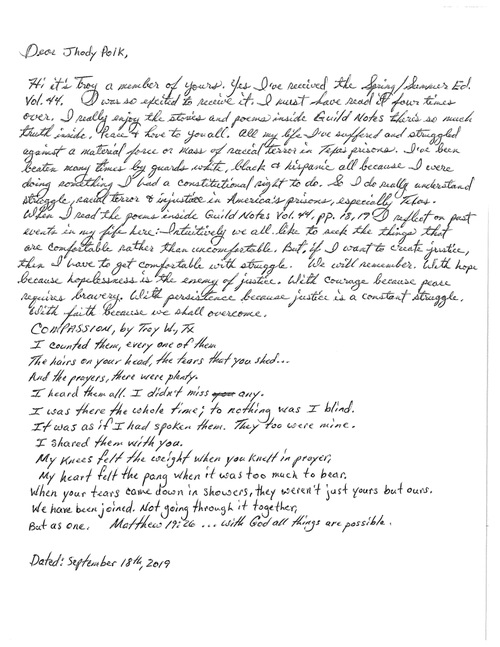 Dear Jhody Polk,
Hi it's Troy a member of yours. Yes I've received the Spring/Summer Ed.
Vol. 44. I was so excited to receive it. I must have read it four times
over. I really enjoy the stories and poems inside Guild Notes there's so much
truth inside. Peace & love to you all. All my life I've suffered and struggled
against a material force or mass of racial terror in Texas prisons. I've been
beaten many times by guards white, black & hispanic all because I were
doing something I had a constitutional right to do. So I do really understand
struggle, racial terror & injustice in America's prisons, especially Texas.
When I read the poems inside Guild Notes Vol. 44, pp. 13, 17 I reflect on past
events in my life here: Intuitively we all like to seek the things that
are comfortable rather than uncomfortable. But, if I want to create justice,
then I have to get comfortable with struggle. We will remember. With hope
because hopelessness is the enemy of justice. With courage because peace
requires bravery. With persistence because justice is a constant struggle.
With faith because we shall overcome.
COMPASSION, by Troy W, Tx
I counted them, every one of them
The hairs on your head, the tears that you shed...
And the prayers, there were plenty.
I heard them all. I didn't miss any.
I was there the whole time; to nothing was I blind.
It was as if I had spoken them. They too were mine.
I shared them with you.
My knees felt the weight when you knelt in prayer,
My heart felt the pang when it was too much to bear.
When your tears came down in showers, they weren't just yours but ours.
We have been joined. Not going through it together,
But as one. Matthew 19:26 ... with God all things are possible.
Dated: September 18th, 2019